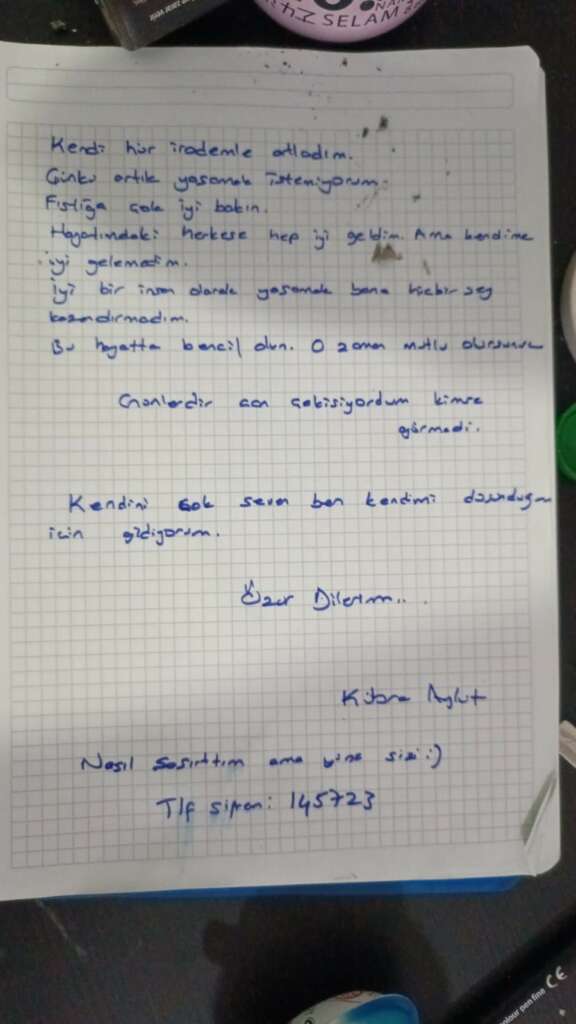 SELAM
Kendi hür irademle atladım.
Çünkü artık yaşamak istemiyorum.
Fıstığa çok iyi bakın.
Hayatımdaki herkese hep iyi geldim. Ama kendime
iyi gelemedim.
İyi bir insan olarak yaşamak bana hiçbir şey
kazandırmadım.
Bu hayatta bencil olun. O zaman mutlu olursunuz
Günlerdir can çekişiyordum kimse
görmedi.
Kendini çok seven ben kendimi düşündüğüm
için gidiyorum.
Özür Dilerim...
Kübra
Nasıl şaşırttım ama yine sizi :)
Tlf şifrem: 145723
colour pen fine CE